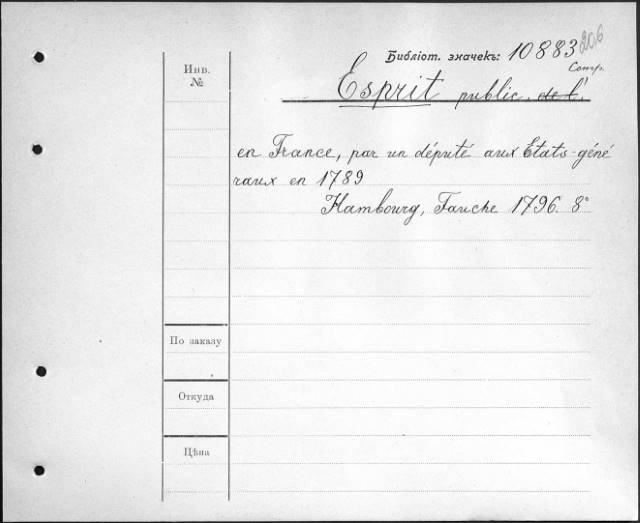 Библіот. значекъ: 10883
206
Comp.
Инв.
№
Esprit public, de l'
en France, par un député aux Etats-géné
raux en 1789
Hambourg, Fauche 1796. 8°
По заказу
Откуда
Цѣна